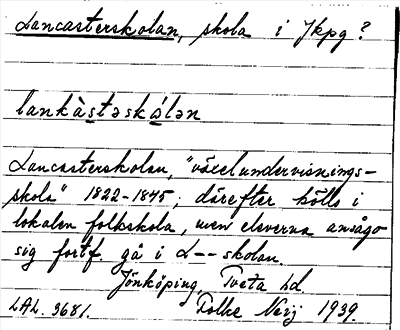 Lancasterskolan, skola i Jkpg?
lankàstəskǻlən
Lancasterskolan, "växelundervisnings-
skola" 1822-1845; därefter hölls i
lokalen folkskola, men eleverna ansågo
sig fortf. gå i L--skolan.
Jönköping, Tveta hd.
LAL. 3681. Folke Neij 1939.